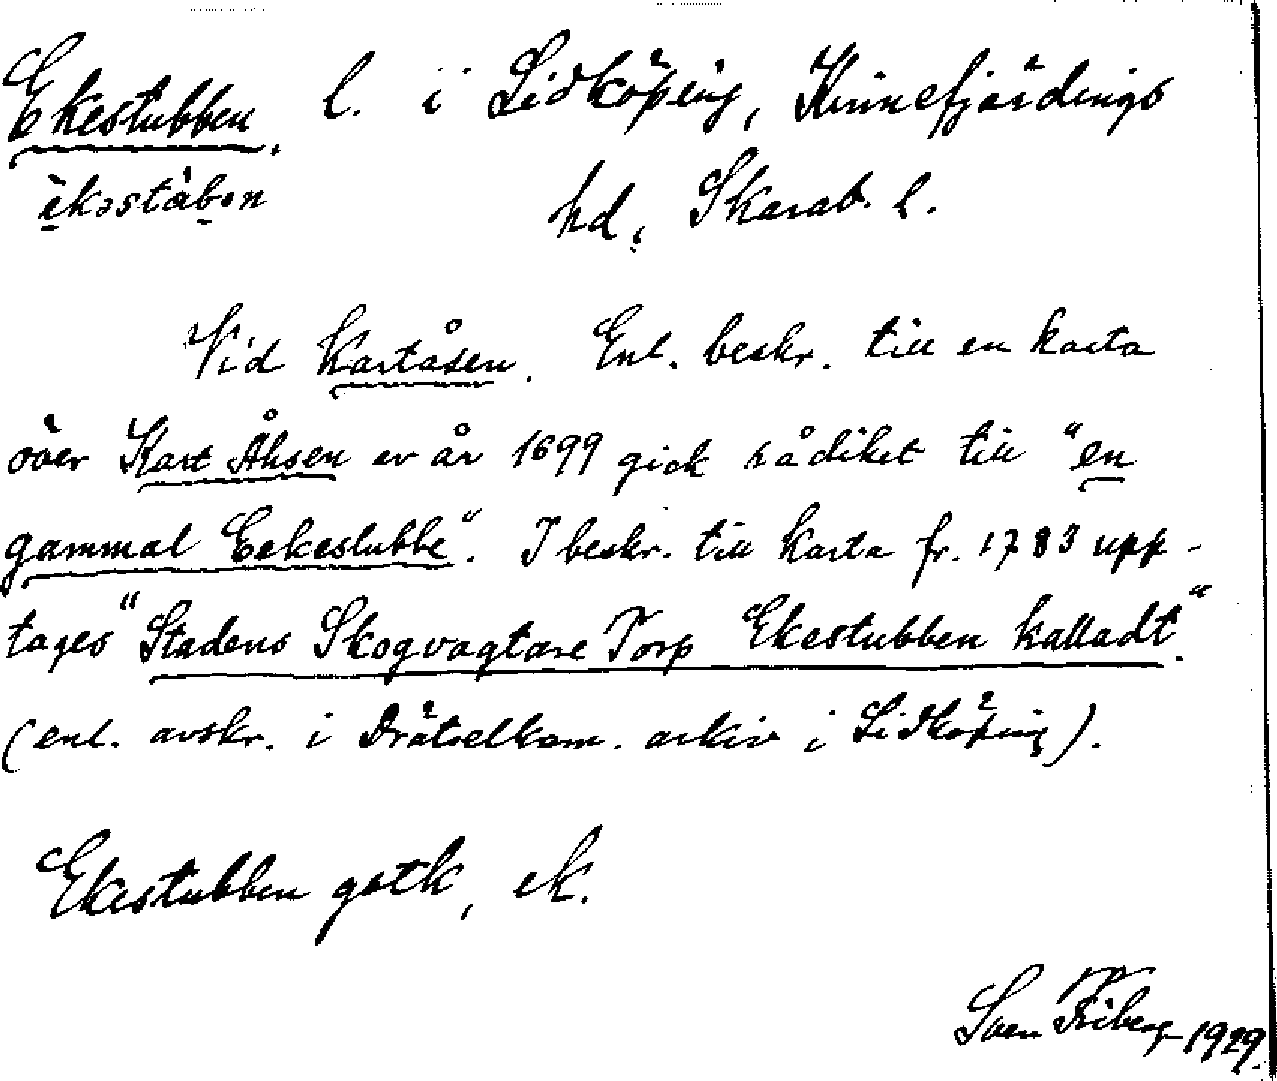 Ekestubben, l. i Lidköping, Kinnefjärdings
hd, Skarab. l.
Vid Kartåsen. Enl. beskr. till en karta
över Kart Åhsen av år 1699 gick rådiket till "en
gammal Eekestubbe". I beskr. till karta fr. 1783 upp-
tages "Stadens Skogvagtare Torp Ekestubben kalladt".
(enl. avskr. i Drätselkam. arkiv i Lidköping).
Ekestubben gstk, ek.
Sven Friberg 1929.